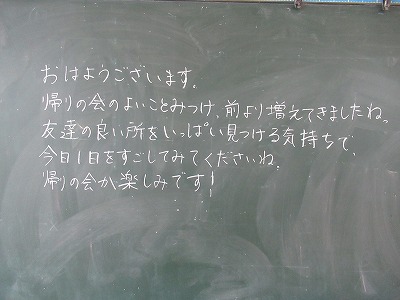 おはようございます。
帰りの会のよいことみつけ、前より増えてきましたね。
友達の良い所をいっぱい見つける気持ちで、
今日1日をすごしてみてくださいね。
帰りの会が楽しみです!